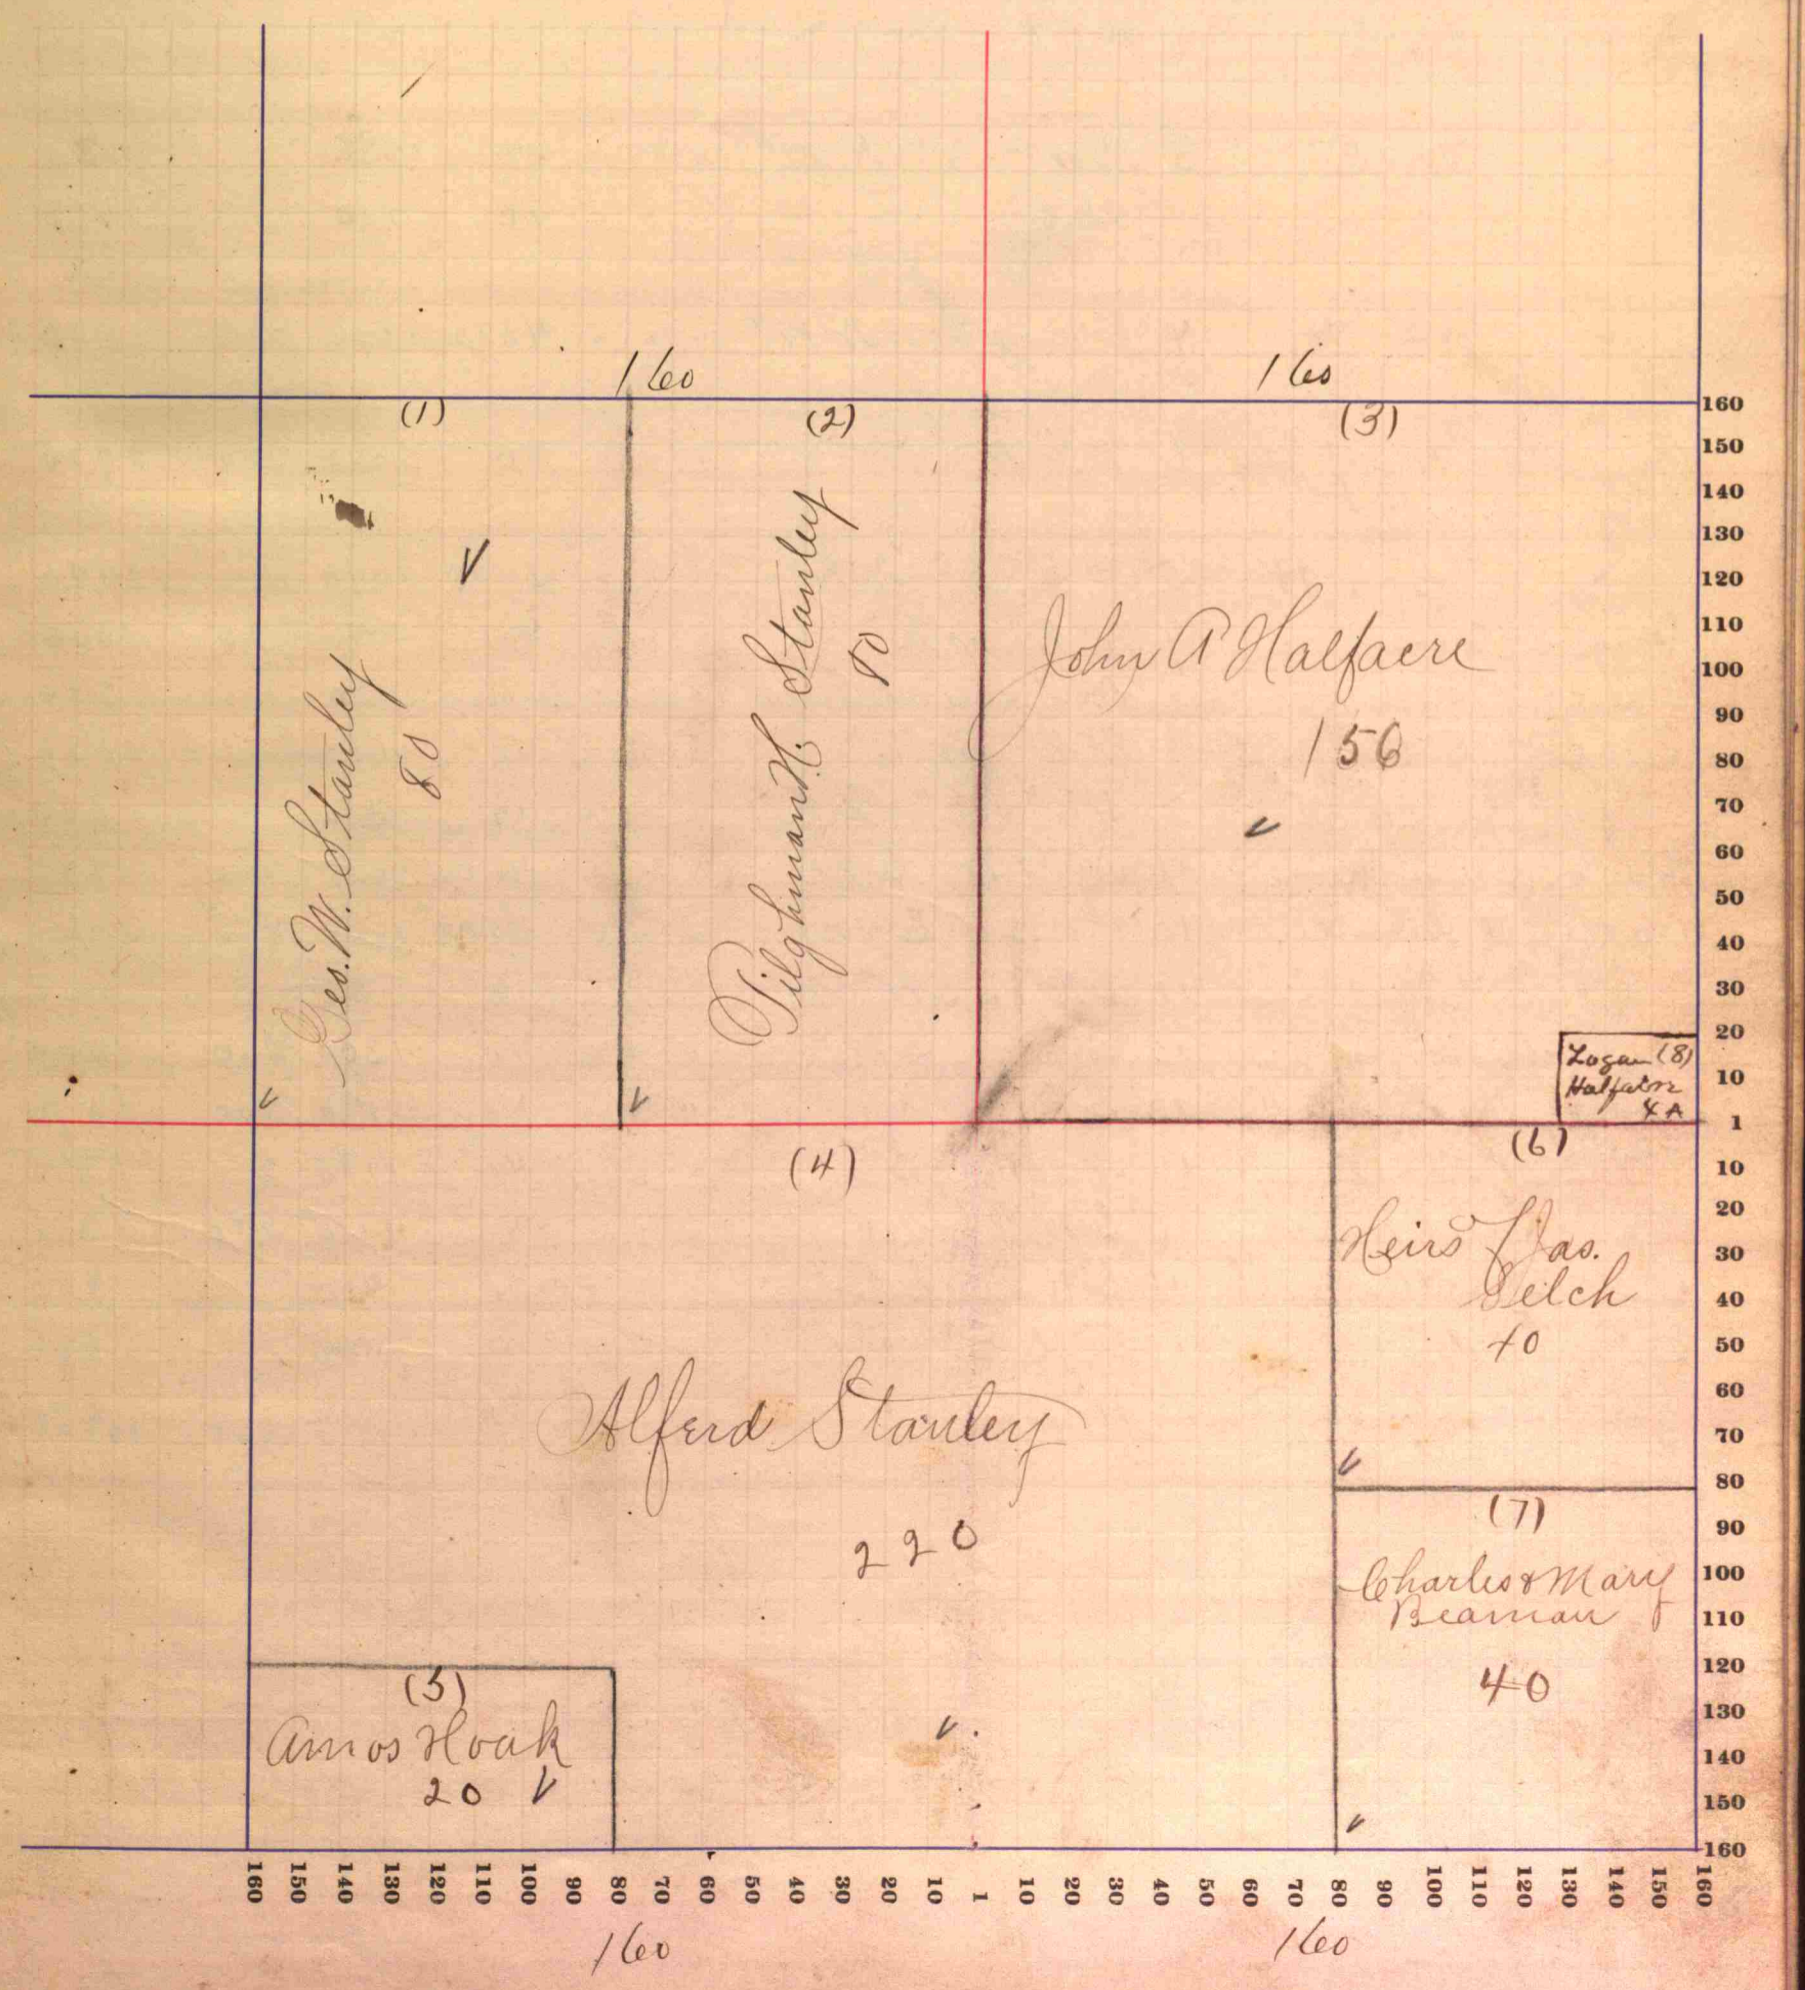 160
160
(1)
(2)
(3)
Geo. W. Stanley
80
Tilghman H. Stanley
80
John A Halfacre
156
Logan (8)
Halfacre
4 A
(4)
Alferd Stanley
220
(5)
Amos Hoak
20
(6)
Heirs of Jas.
40
(7)
Charles & Mary
Beaman
40
160
150
140
130
120
110
100
90
80
70
60
50
40
30
20
10
1
10
20
30
40
50
60
70
80
90
100
110
120
130
140
150
160
160 150 140 130 120 110 100 90 80 70 60 50 40 30 20 10 1 10 20 30 40 50 60 70 80 90 100 110 120 130 140 150 160
160
160